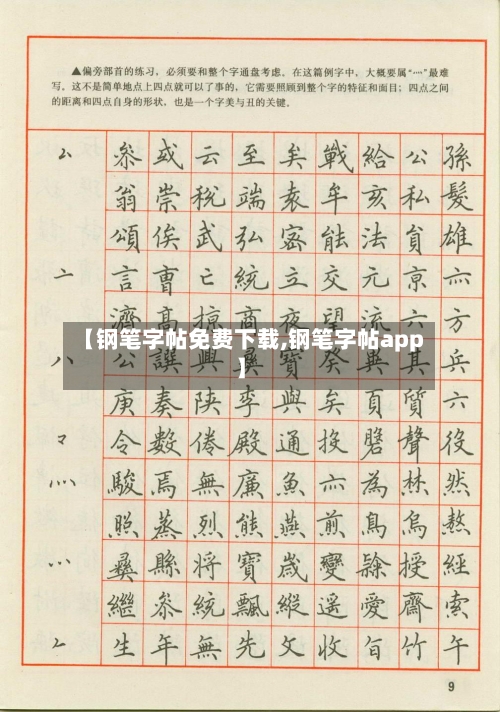 ▲偏旁部首的练习，必须要和整个字通盘考虑。在这篇例字中，大概要属“灬”最难
写。这不是简单地点上四点就可以了事的，它需要照顾到整个字的特征和面目；四点之间
的距离和四点自身的形状，也是一个字美与丑的关键。
厶 参 或 云 至 矣 戰 給 公 孫
翁 崇 稅 端 袁 牟 亥 私 髮
頌 俟 武 弘 密 能 法 貟 雄
亠 言 曹 亡 統 立 交 元 京 亦
濟 高 掠 商 夜 望 流 六 方
【钢笔字帖免费下载,钢笔字帖app
】
八 公 譔 興 寶 癸 典 其 兵
庚 奏 陕 李 與 矣 頁 質 六
令 數 倦 殿 通 投 聲 役
灬 駿 焉 無 廉 魚 亦 為 林 然
照 蒸 烈 熊 燕 煎 鳥 烏 熬
彝 縣 将 寶 歲 變 授 經
繼 参 統 飄 縱 遥 愛 齋 索
生 年 無 先 文 收 百 竹 午
9